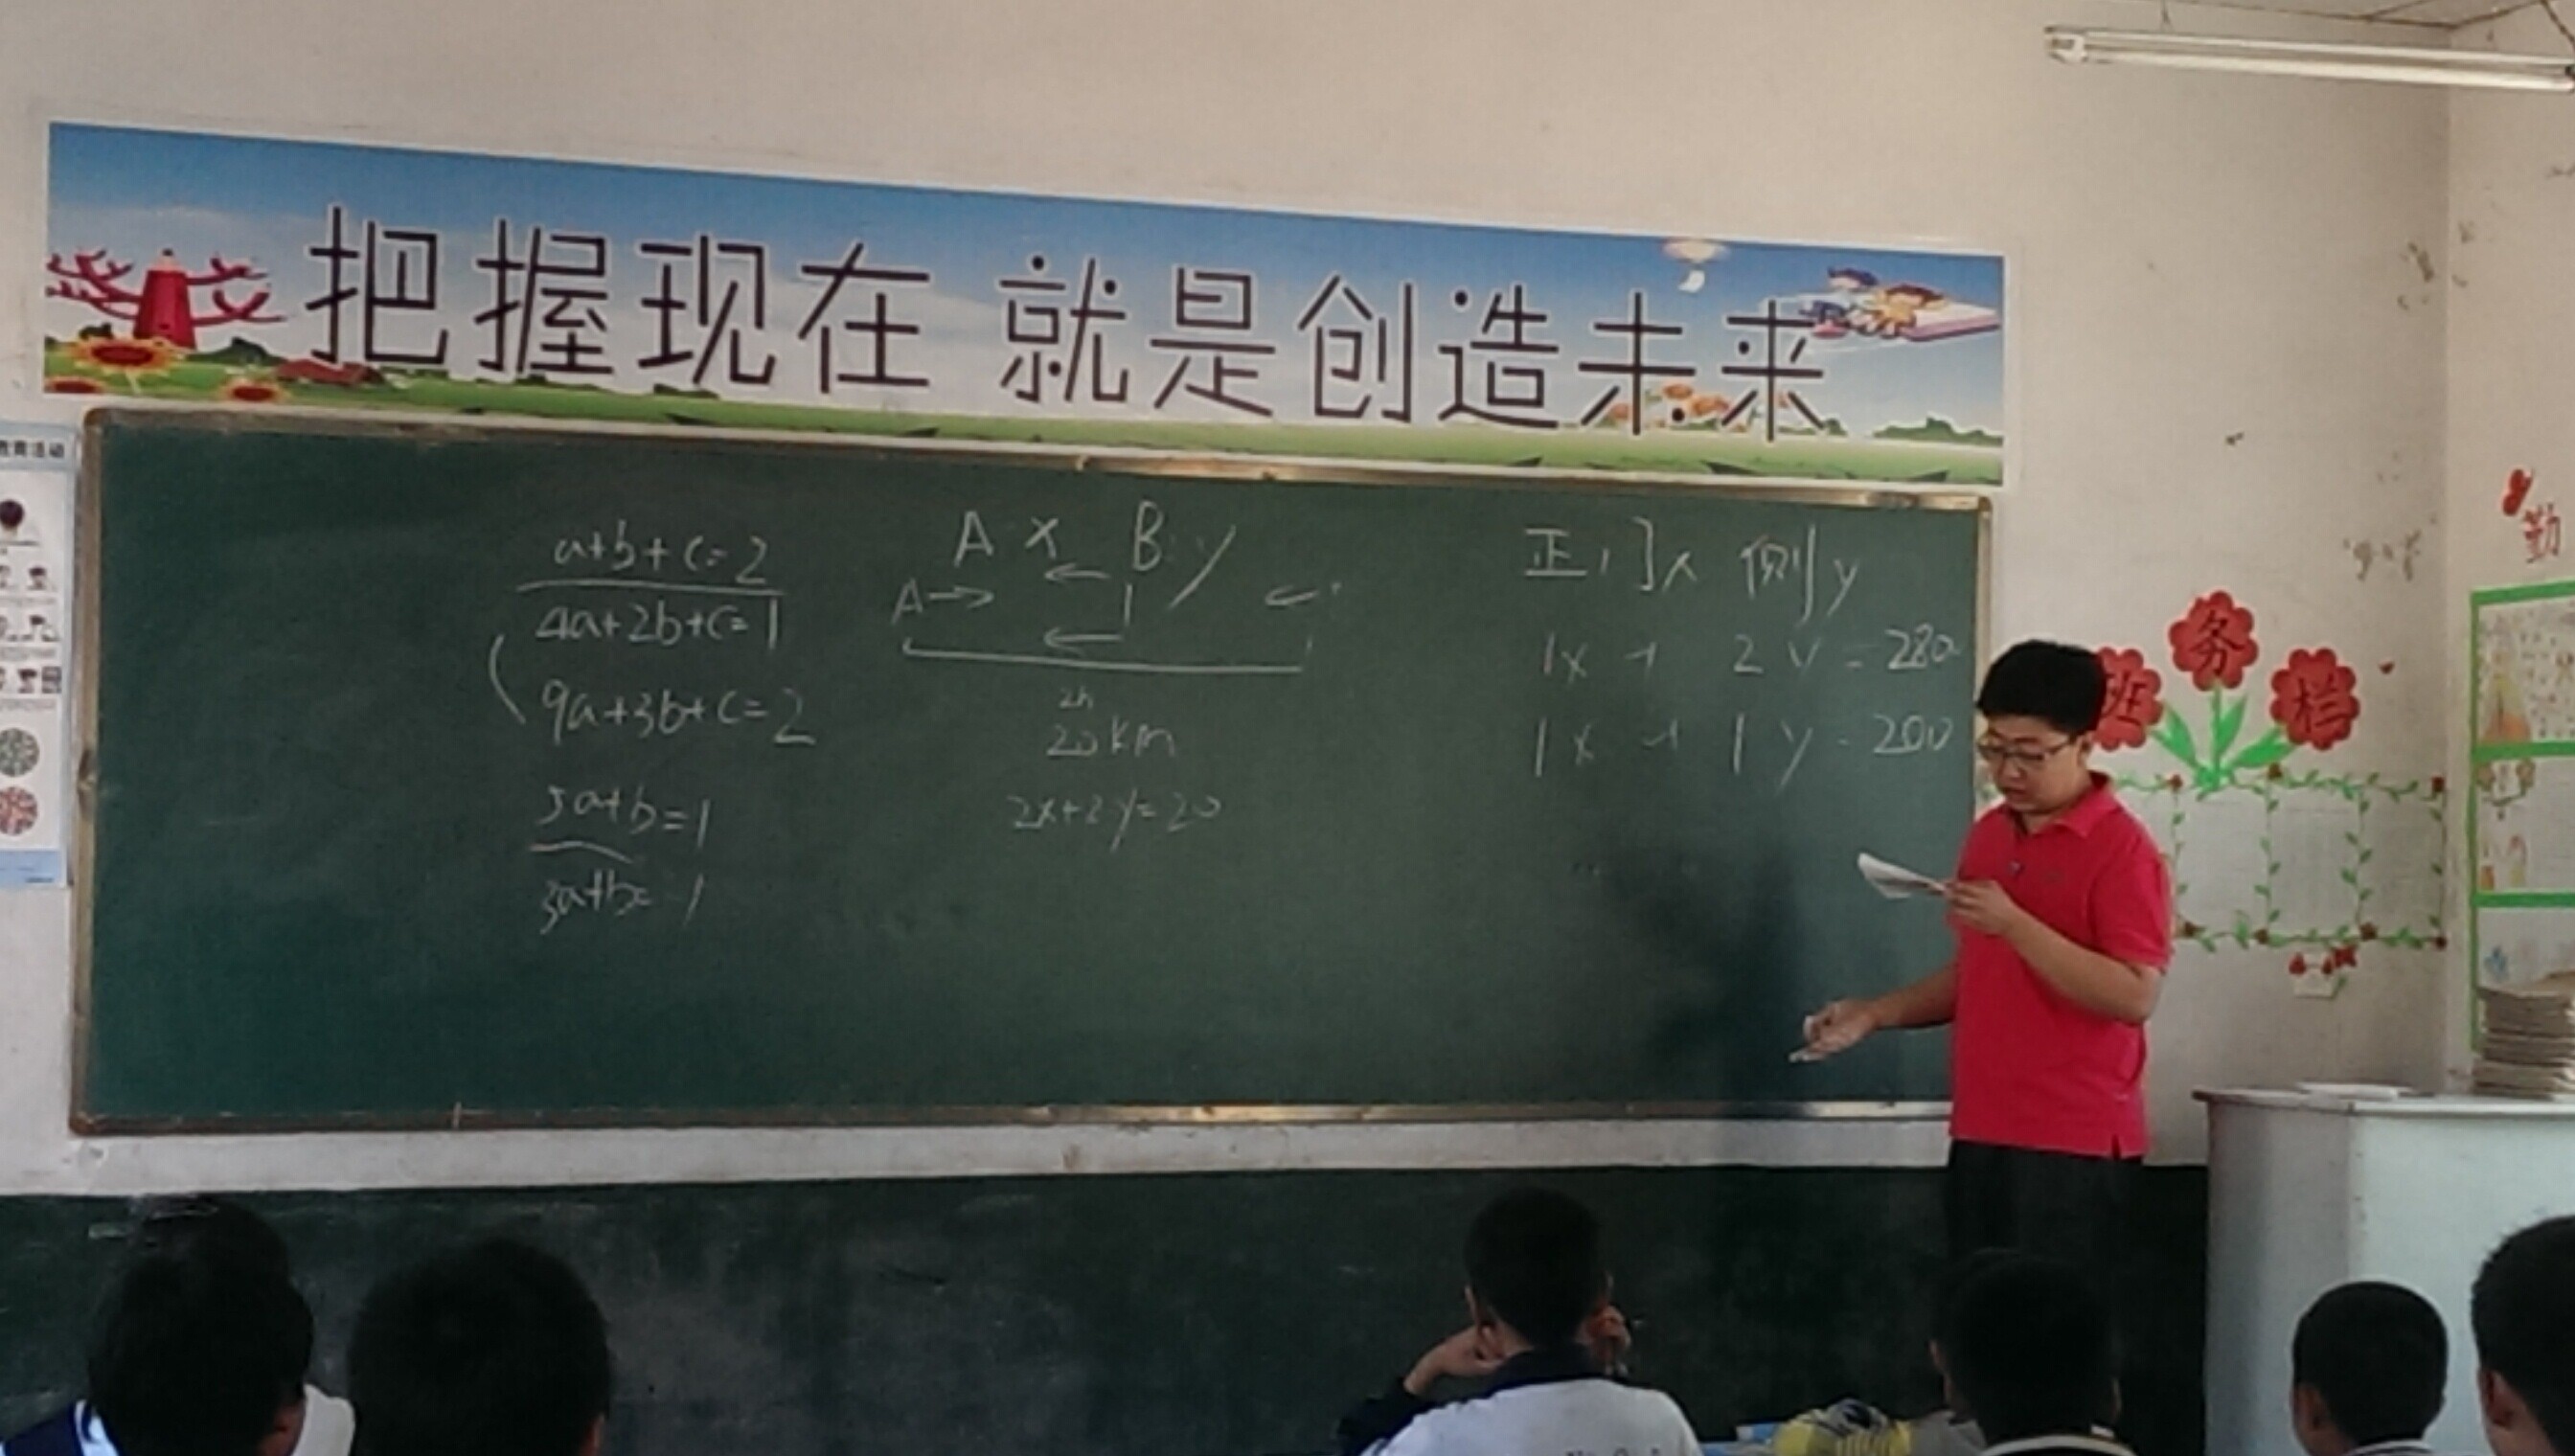 把握现在 就是创造未来
教育活动
勤
班务栏
a+b+c=2
4a+2b+c=1
9a+3b+c=2
5a+b=1
3a+b=-1
A x B y
A
2h
20km
2x+2y=20
正门x 侧y
1x + 2y = 280
1x + 1y = 200